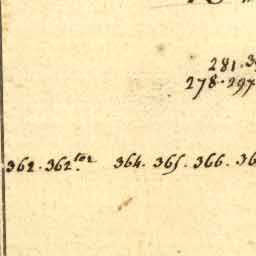 281.
278.297
362.362. 364.365.366.